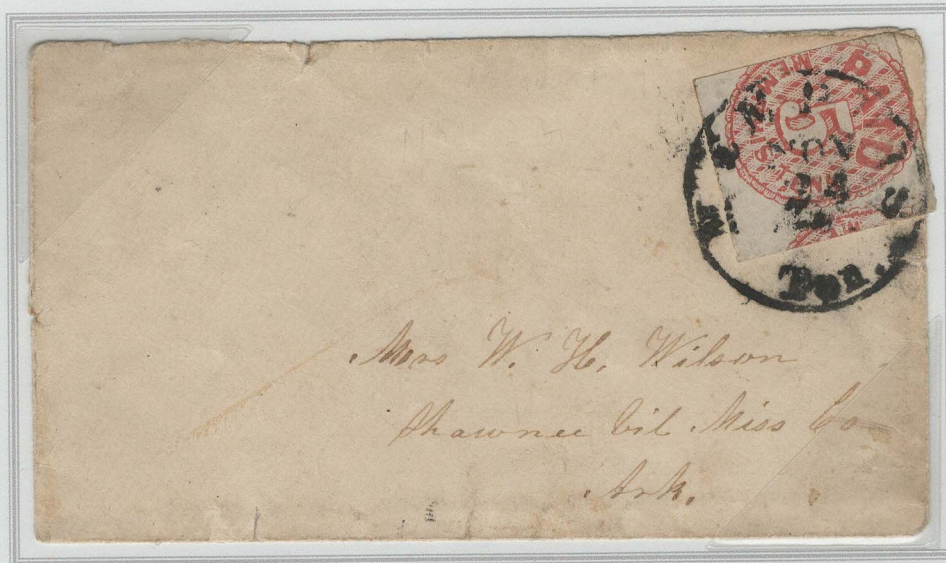 PAID
5
MEMPHIS TENN
MEMPHIS
NOV
24
Ten.
Mrs W. H. Wilson
Shawnee Vil Miss Co
Ark.